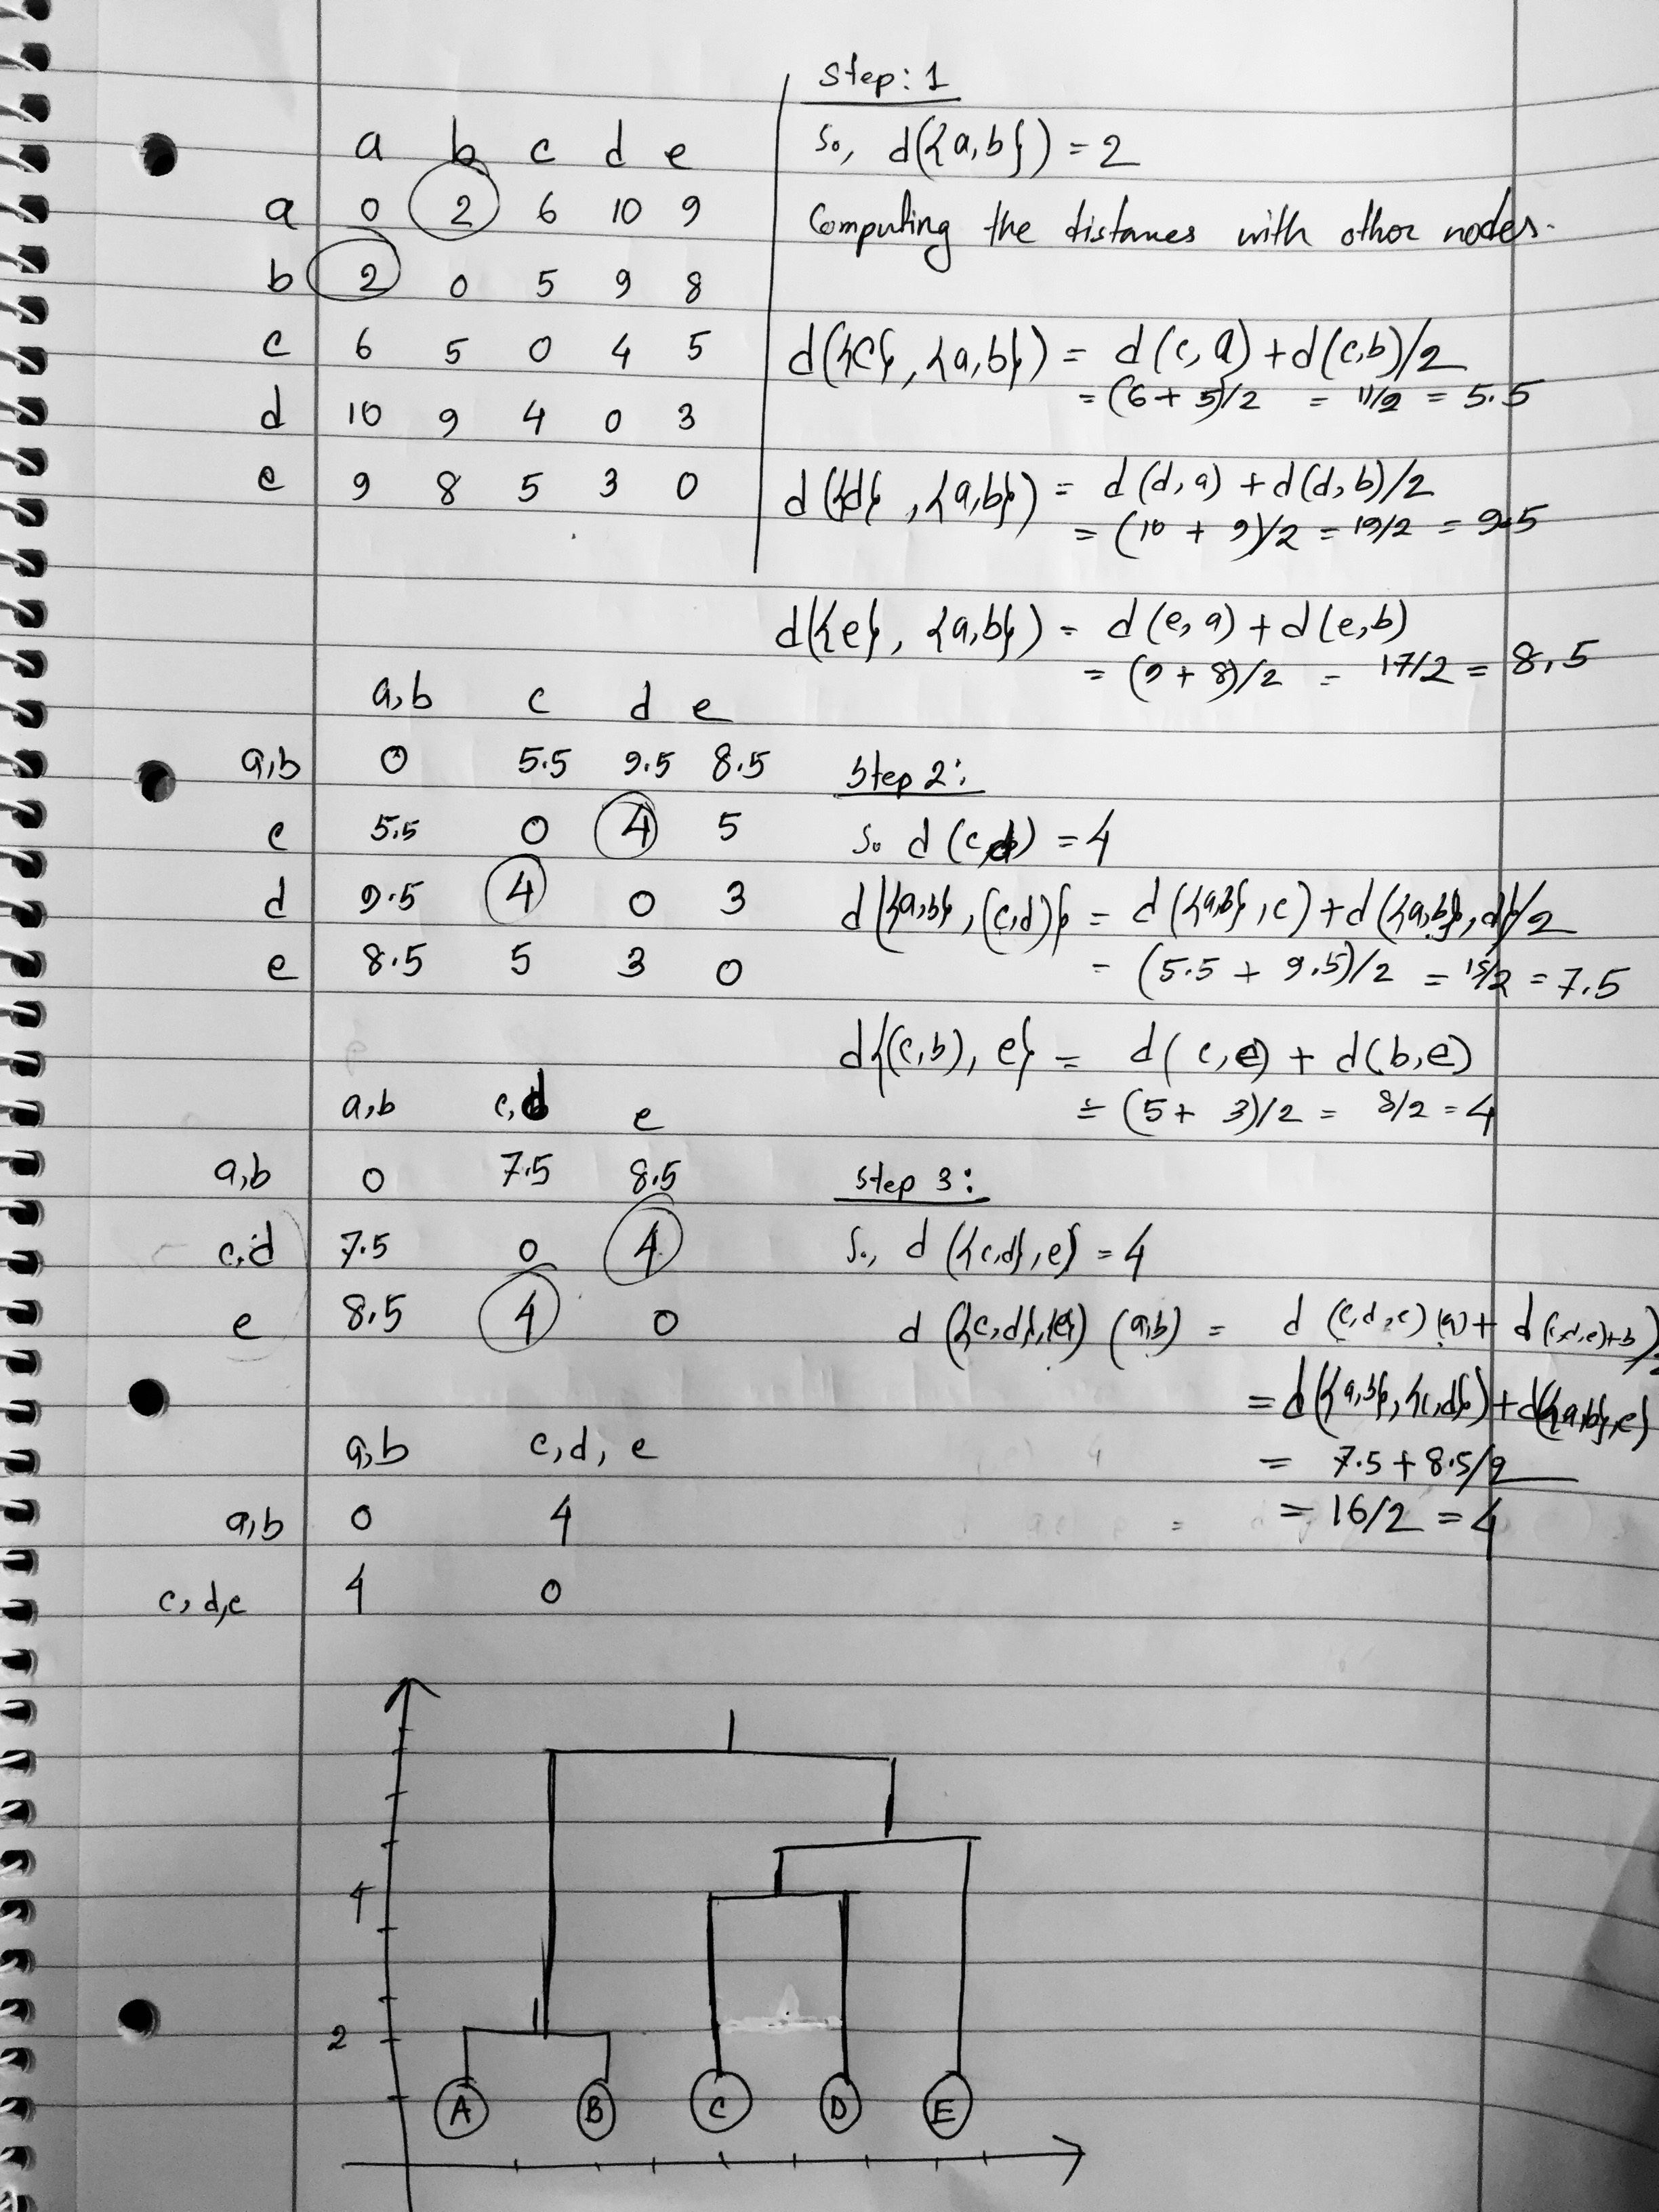 a b c d e
a 0 2 6 10 9
b 2 0 5 9 8
c 6 5 0 4 5
d 10 9 4 0 3
e 9 8 5 3 0
Step: 1
So, d({a,b}) = 2
Computing the distances with other nodes.
d({c}, {a,b}) = d(c, a) + d(c,b)/2
= (6 + 5)/2 = 11/2 = 5.5
d({d}, {a,b}) = d(d, a) + d(d, b)/2
= (10 + 9)/2 = 19/2 = 9.5
d({e}, {a,b}) = d(e, a) + d(e,b)
= (9 + 8)/2 = 17/2 = 8.5
a,b c d e
a,b 0 5.5 9.5 8.5
c 5.5 0 4 5
d 9.5 4 0 3
e 8.5 5 3 0
Step 2:
So d (c,d) = 4
d({a,b}, (c,d)} = d({a,b}, c) + d({a,b}, d)/2
= (5.5 + 9.5)/2 = 15/2 = 7.5
d{(c,b), e} = d(c,e) + d(b,e)
= (5 + 3)/2 = 8/2 = 4
a,b c,d e
a,b 0 7.5 8.5
c,d 7.5 0 4
e 8.5 4 0
Step 3:
So, d ({c,d}, e) = 4
d ({c,d}, e) (a,b) = d (c,d,e) (a) + d (c,d,e)+b)
= d({a,b}, {c,d}) + d({a,b},e)
= 7.5 + 8.5/2
= 16/2 = 4
a,b c, d, e
a,b 0 4
c, d,e 4 0
4
2
A B C D E